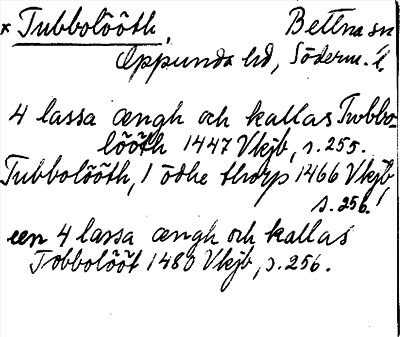 * Tubbolôôth. Bettna sn
Oppunda hd, Söderm. l.
4 lassa ængh och kallas Twbbo-
lôôth 1447 Vkjb, s. 255.
Tubbolôôth, 1 ödhe thorp 1466 Vkjb,
s. 256.
een 4 lassa ængh och kallas
Tobbolôôt 1480 Vkjb, s. 256.